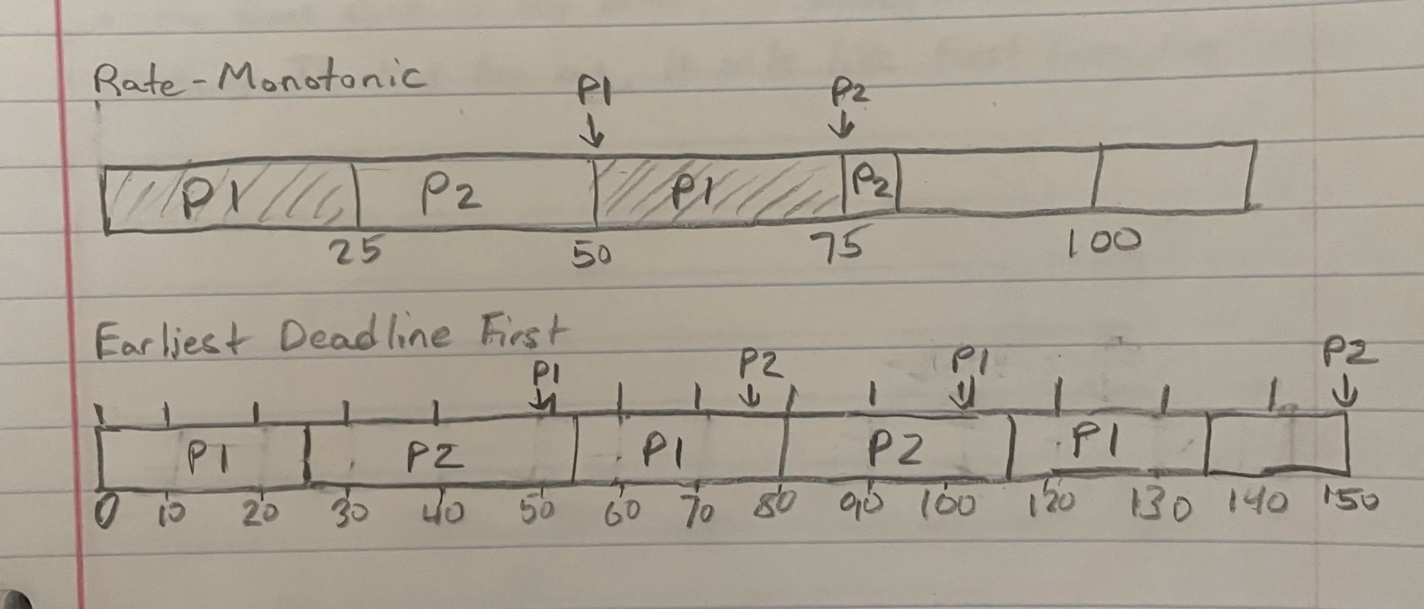 Rate-Monotonic
P1 P2
P1 P2 P1 P2
25 50 75 100
Earliest Deadline First
P1 P2 P1 P2
P1 P2 P1 P2 P1
0 10 20 30 40 50 60 70 80 90 100 120 130 140 150